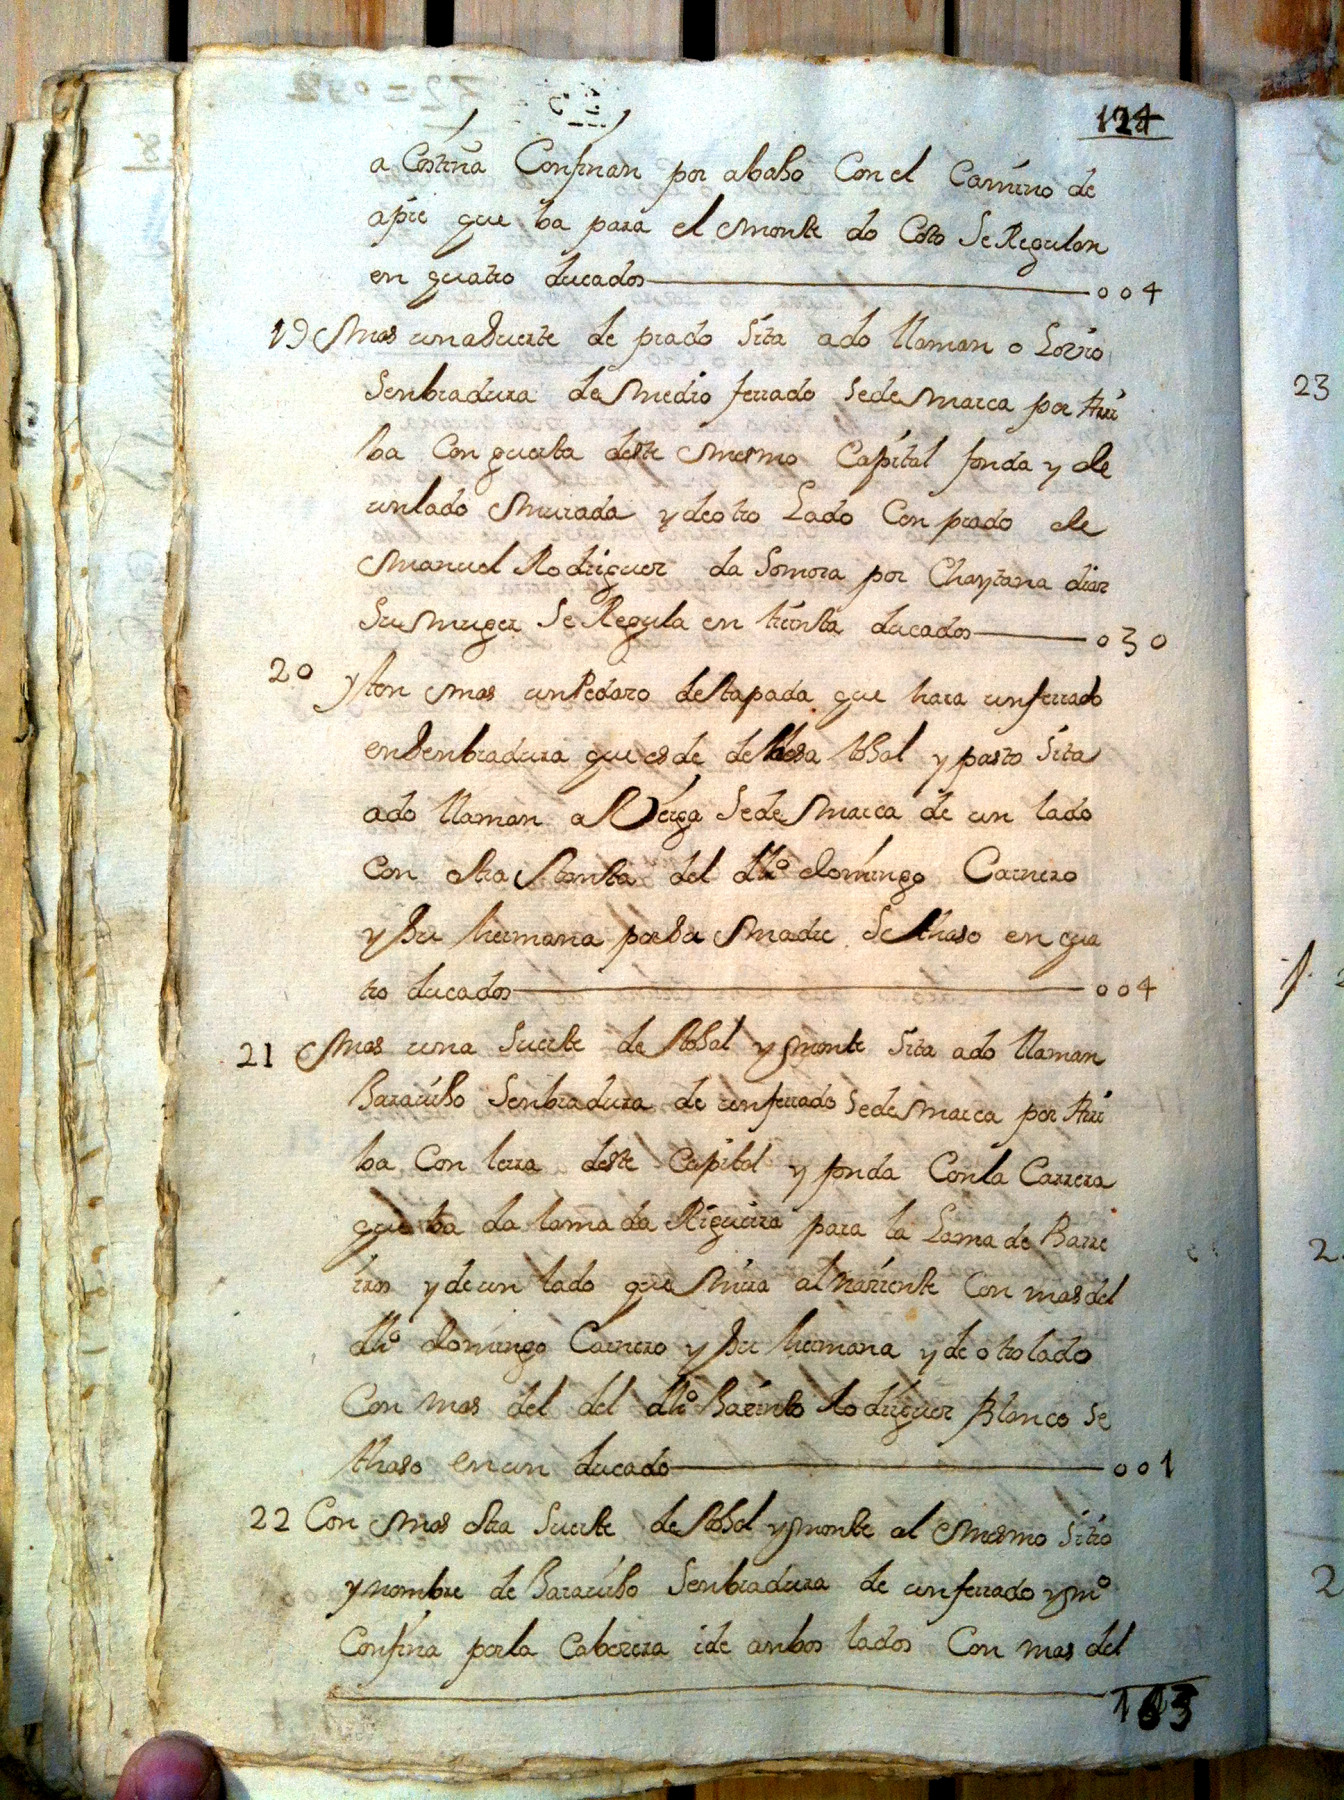 124
a Costiña Confinan por abaho Con el Camino de
apie que ba para el monte do Coto Se Regulan
en quatro ducados 004
19 Mas una Suerte de prado Sita ado llaman o Lorio
Senbradura de medio ferrado Sedemarca por Arri
ba Con guerta deste mesmo Capital fonda y de
unlado murada y deotro Lado Con prado de
Manuel Rodriguez da Somoza por Chaytana diaz
Su muger Se Regula en trinta ducados 030
20 yten mas unPedazo destapada que hara unferrado
enSenbradura que es de debesa tohal y pasto Sita
ado llaman a Sedemarca de un lado
Con otra tanta del dho domingo Carnero
y Su hermana por Su madre Se thaso en qua
tro ducados 004
21 Mas una Suerte de tohal y monte Sita ado llaman
Bararuho Senbradura de unferrado Sedemarca por Arri
ba Con terra deste Capital y fonda Conla Carrera
que ba da lama da Rigueira para la Lama de Barre
iros y deun lado que mira al nasiente Con mas del
dho domingo Carnero y Su hermana y de otro lado
Con mas del del dho Rodriguez Blanco Se
thaso en un ducado 001
22 Con mas otra Suerte de tohal y monte al mesmo Sitio
y nombre de Bararuho Senbradura de unferrado y mº
Confina porla Cabezera ide anbos lados Con mas del
163
23
2
2